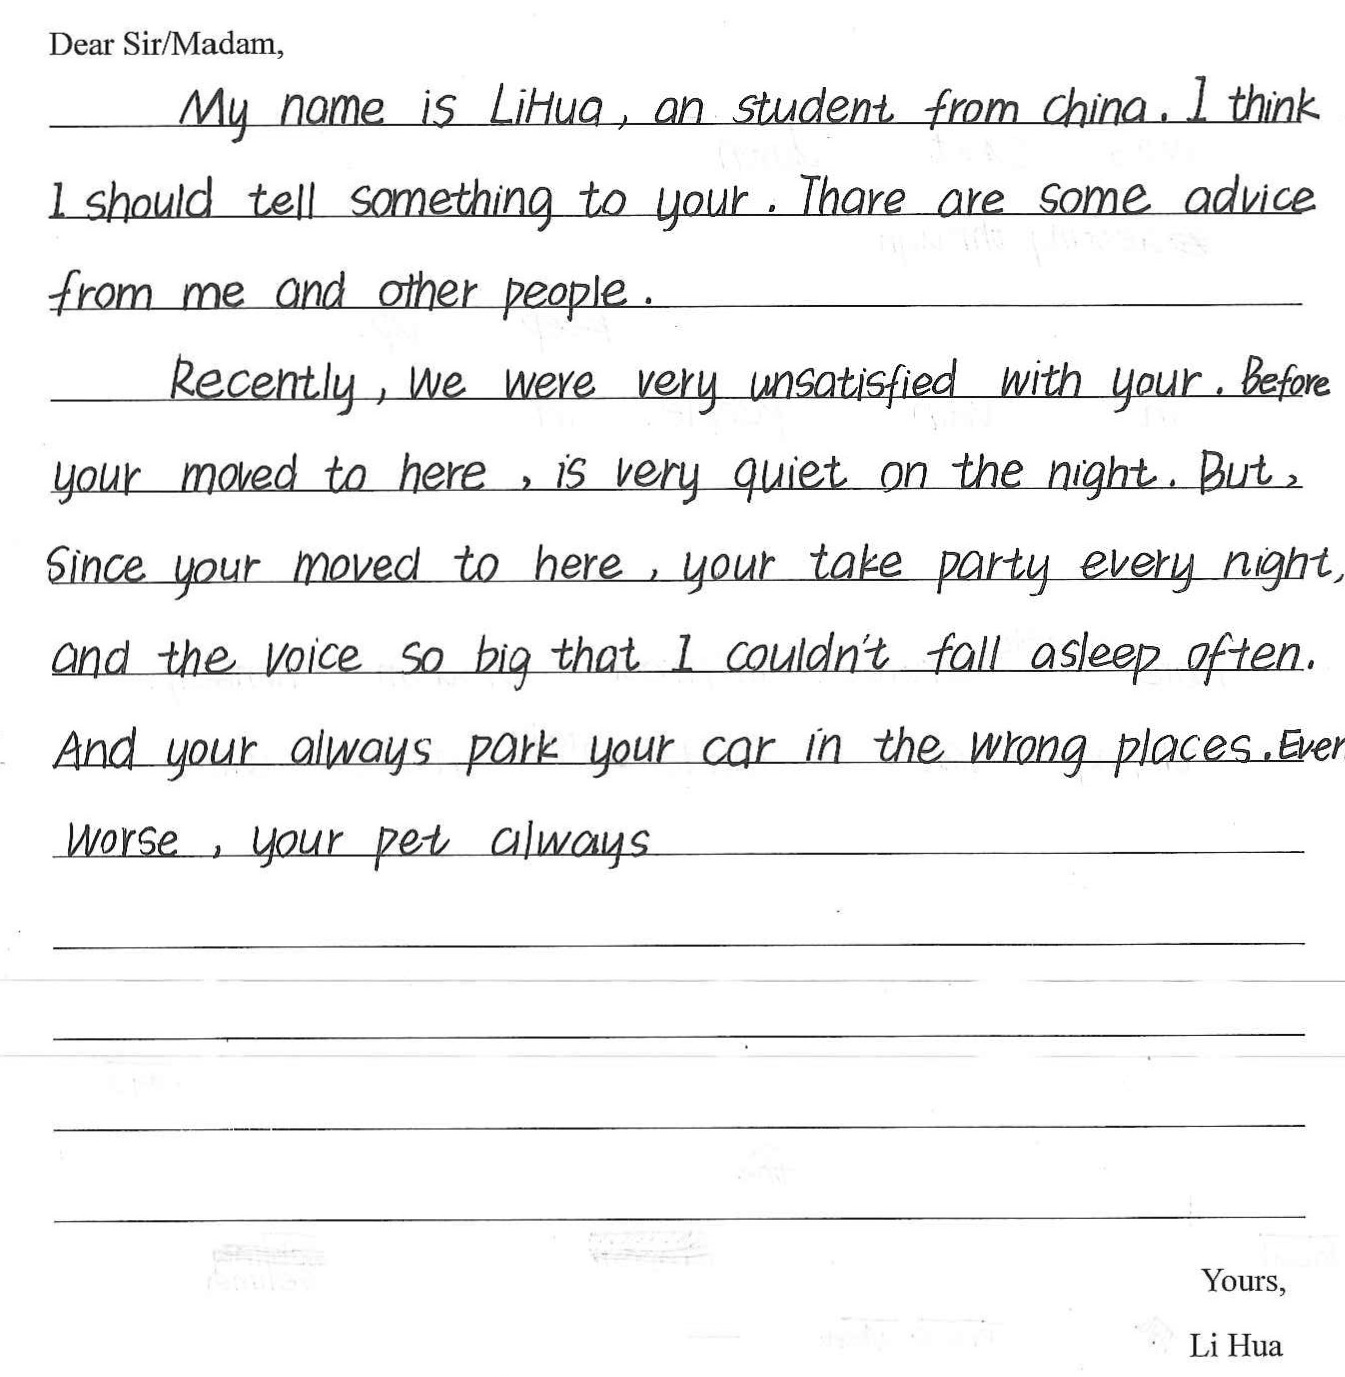 Dear Sir/Madam,
My name is LiHua, an student from china. I think
I should tell something to your. Thare are some advice
from me and other people.
Recently, we were very unsatisfied with your. Before
your moved to here, is very quiet on the night. But,
Since your moved to here, your take party every night,
and the voice so big that I couldn't fall asleep often.
And your always park your car in the wrong places. Even
worse, your pet always
Yours,
Li Hua